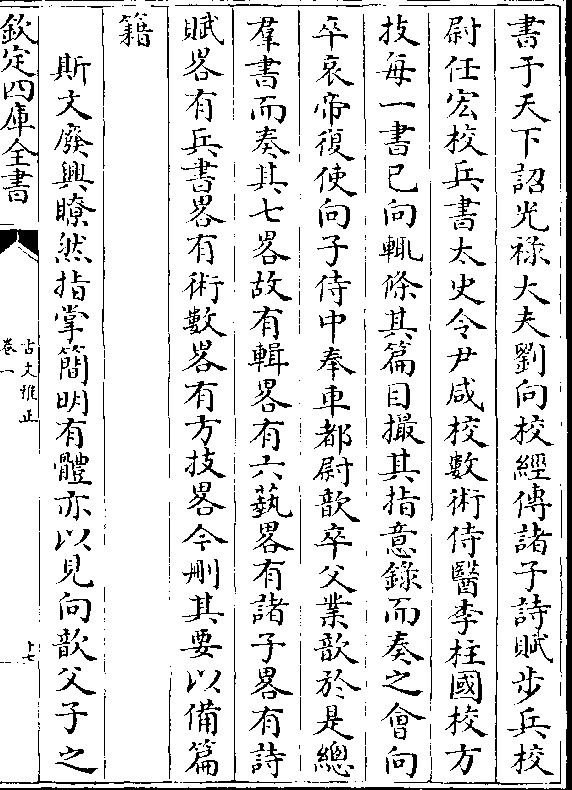 書于天下詔光祿大夫劉向校經傳諸子詩賦步兵校
尉任宏校兵書太史令尹咸校數術侍醫李柱國校方
技每一書已向輒條其篇目撮其指意錄而奏之會向
卒哀帝復使向子侍中奉車都尉歆卒父業歆於是總
羣書而奏其七畧故有輯畧有六藝畧有諸子畧有詩
賦畧有兵書畧有術數畧有方技畧今刪其要以備篇
籍
斯文廢興瞭然指掌簡明有體亦以見向歆父子之
欽定四庫全書
古文雅正
卷一
十七